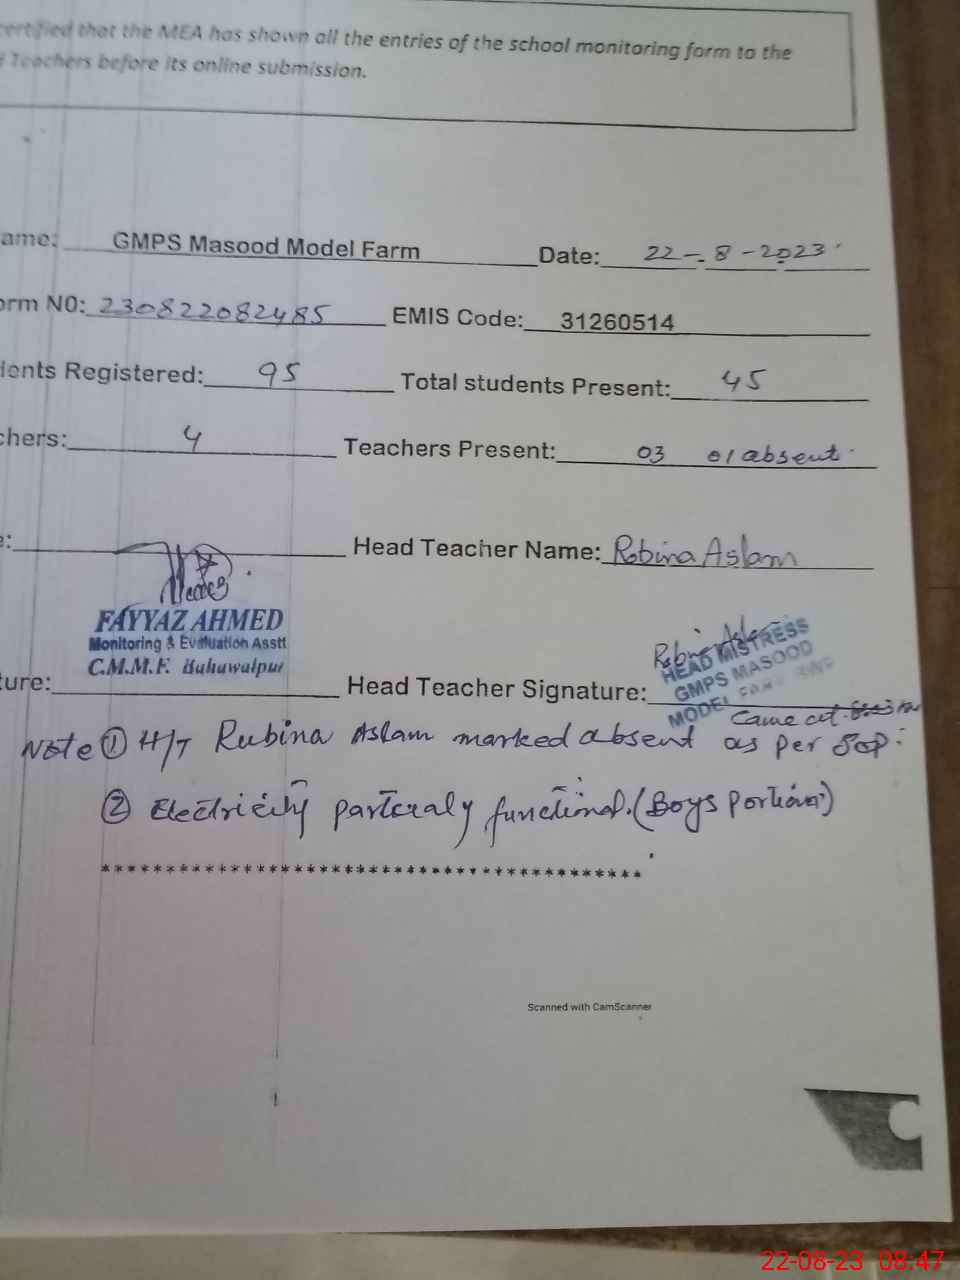 certified that the MEA has shown all the entries of the school monitoring form to the
Teachers before its online submission.
ame: GMPS Masood Model Farm Date: 22-8-2023
orm N0: 230822082485 EMIS Code: 31260514
dents Registered: 95 Total students Present: 45
chers: 4 Teachers Present: 03 01 absent
e: Head Teacher Name: Robina Aslam
FAYYAZ AHMED
Monitoring & Evaluation Asstt
C.M.M.F. Bahawalpur
Robina Aslam
HEAD MISTRESS
GMPS MASOOD
MODEL FARM BWP
ture: Head Teacher Signature:
Came at
Note ① H/T Rubina Aslam marked absent as per SOP.
② Electricity parteraly functional. (Boys Portion)
******************************************
Scanned with CamScanner
22-08-23 08:47